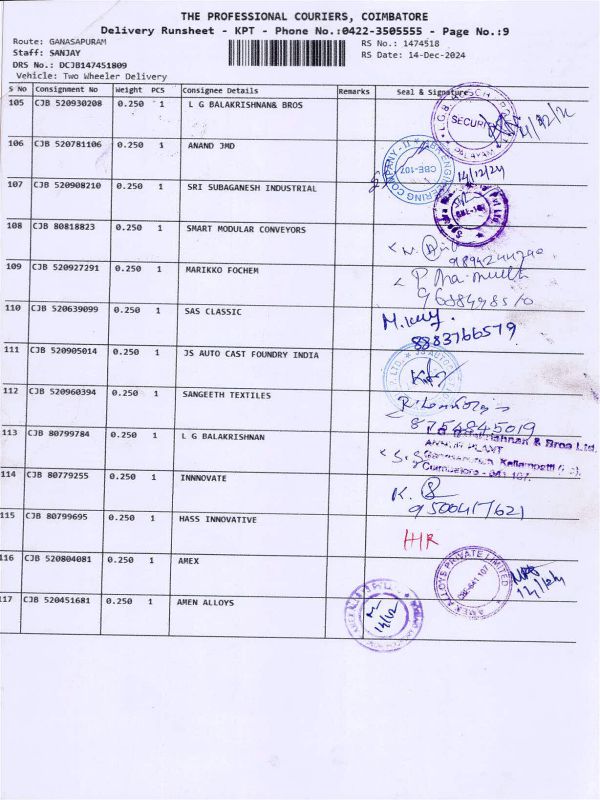 THE PROFESSIONAL COURIERS, COIMBATORE
Delivery Runsheet - KPT - Phone No.:0422-3505555 - Page No.:9
Route: GANASAPURAM
RS No.: 1474518
Staff: SANJAY
RS Date: 14-Dec-2024
DRS No.: DCJB147451809
Vehicle: Two Wheeler Delivery
S No Consignment No Weight PCS Consignee Details Remarks Seal & Signature
105 CJB 520930208 0.250 1 L G BALAKRISHNAN& BROS
SECURITY
106 CJB 520781106 0.250 1 ANAND JMD
CBE-107
14/12/24
107 CJB 520908210 0.250 1 SRI SUBAGANESH INDUSTRIAL
108 CJB 80818823 0.250 1 SMART MODULAR CONVEYORS
109 CJB 520927291 0.250 1 MARIKKO FOCHEM
110 CJB 520639099 0.250 1 SAS CLASSIC
8883766579
111 CJB 520905014 0.250 1 JS AUTO CAST FOUNDRY INDIA
112 CJB 520960394 0.250 1 SANGEETH TEXTILES
8754845019
113 CJB 80799784 0.250 1 L G BALAKRISHNAN
& Bros Ltd.
PLANT
Coimbatore - 641 107.
114 CJB 80779255 0.250 1 INNNOVATE
9500417621
115 CJB 80799695 0.250 1 HASS INNOVATIVE
HR
116 CJB 520804081 0.250 1 AMEX
AMEX ALLOYS PRIVATE LIMITED
CBE-641 107
117 CJB 520451681 0.250 1 AMEN ALLOYS